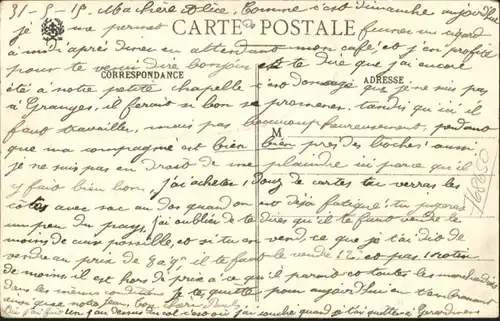 31-5-15 Ma chère Alice, Comme c'est dimanche aujourd'hui
je me permet fumer un cigard
CARTE POSTALE
à midi après diner en attendant mon café et j'en profite
pour te venir dire bonjour et te dire que j'ai encore
CORRESPONDANCE
ADRESSE
été à notre petite chapelle c'est domage que je ne suis pas
à Granges, il ferait si bon se promener, tandis qu'ici il
faut travailler, mais pas beaucoup heureusement, pendant
M
que ma compagnie est bien bien près des boches! aussi
je ne suis pas en droit de me plaindre ici parce que il
y fait bien bon, j'ai acheter douz de cartes tu verras les
cotes avec sac au dos quand on est déjà fatigué! tu jugeras
un peu du pays, j'ai oublier de te dires qu'il te faut vendre le
moins de aux possible, et si tu en vend, ce que je t'ai dis de
vendre au prix de il te faut le vendre 12 et pas 1 rotin
de moins, il est hors de prix à ce qu'il parait et toutes les marchandises
dans les mêmes conditions je te quitte pour aujourd'hui en t'embrassant
ainsi que notre Jean bon
ou j'ai fait un j'au dessus du col c'est où j'ai couché quand je t'ai quittée
768850